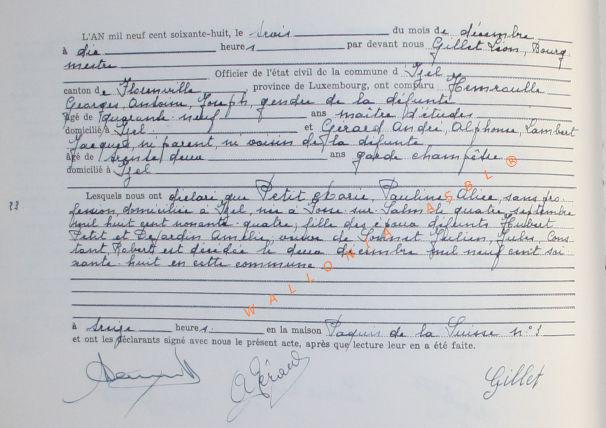 L'AN mil neuf cent soixante-huit, le trois du mois de décembre
à dix heures par devant nous Gillet Léon, Bourg
mestre
Officier de l'état civil de la commune d' Izel
canton de Florenville province de Luxembourg, ont comparu Hemroulle
Georges, Antoine, Joseph, gendre de la défunte
âgé de quarante-neuf ans maître d'études
domicilié à Izel et Gérard André, Alphonse, Lambert
Jacques, ni parent, ni voisin de la défunte
âgé de trente deux ans garde champêtre
domicilié à Izel
Lesquels nous ont déclaré que Petit Marie, Pauline, Alice, sans pro
fession, domiciliée à Izel, née à Fosse sur Salm le quatre septembre
mil huit cent nonante-quatre, fille des époux défunts Hubert
Petit et Dejardin Amélie, veuve de Julien, Jules, Cons
tant, Robert est décédée le deux décembre mil neuf cent soi
xante-huit en cette commune
à seize heures en la maison Paquis de la Suisse n° 1
et ont les déclarants signé avec nous le présent acte, après que lecture leur en a été faite.
AGérard Gillet
WALLONIA ASBL ®